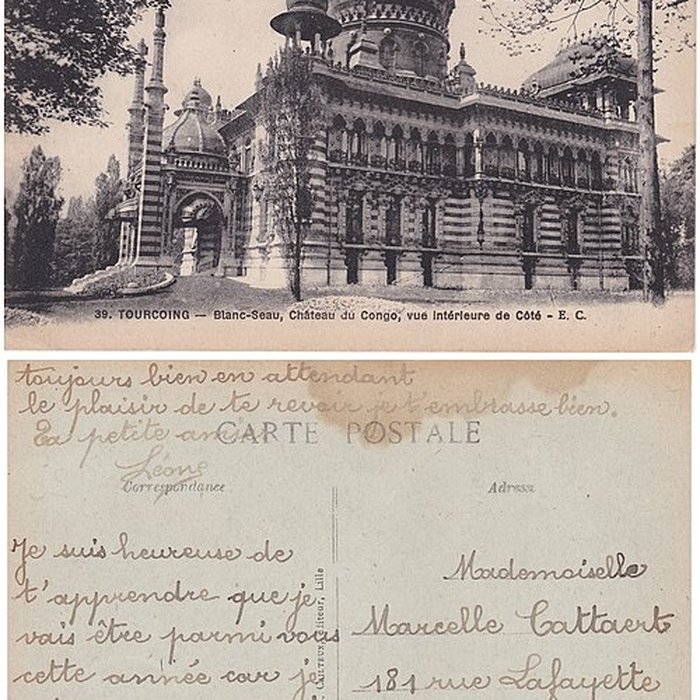 39. TOURCOING — Blanc-Seau, Château du Congo, vue intérieure de Côté - E. C.
toujours bien en attendant
le plaisir de te revoir je t'embrasse bien.
Ta petite amie
CARTE POSTALE
Léone
Correspondance
Adresse
Je suis heureuse de
t'apprendre que je
vais être parmi vous
cette année car je
Editeur, Lille
Mademoiselle
Marcelle Cattaert
181 rue Lafayette